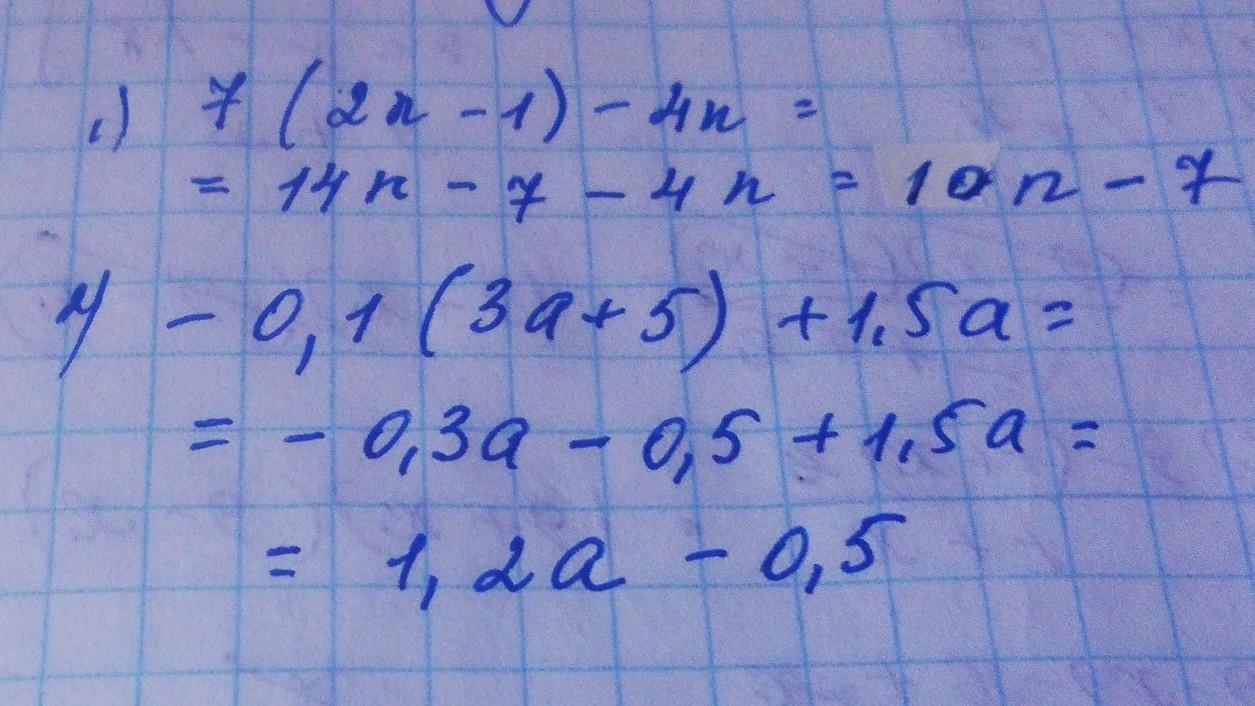 1) 7 (2n - 1) - 4n =
= 14n - 7 - 4n = 10n - 7
2) - 0,1 (3a + 5) + 1,5a =
= - 0,3a - 0,5 + 1,5a =
= 1,2a - 0,5